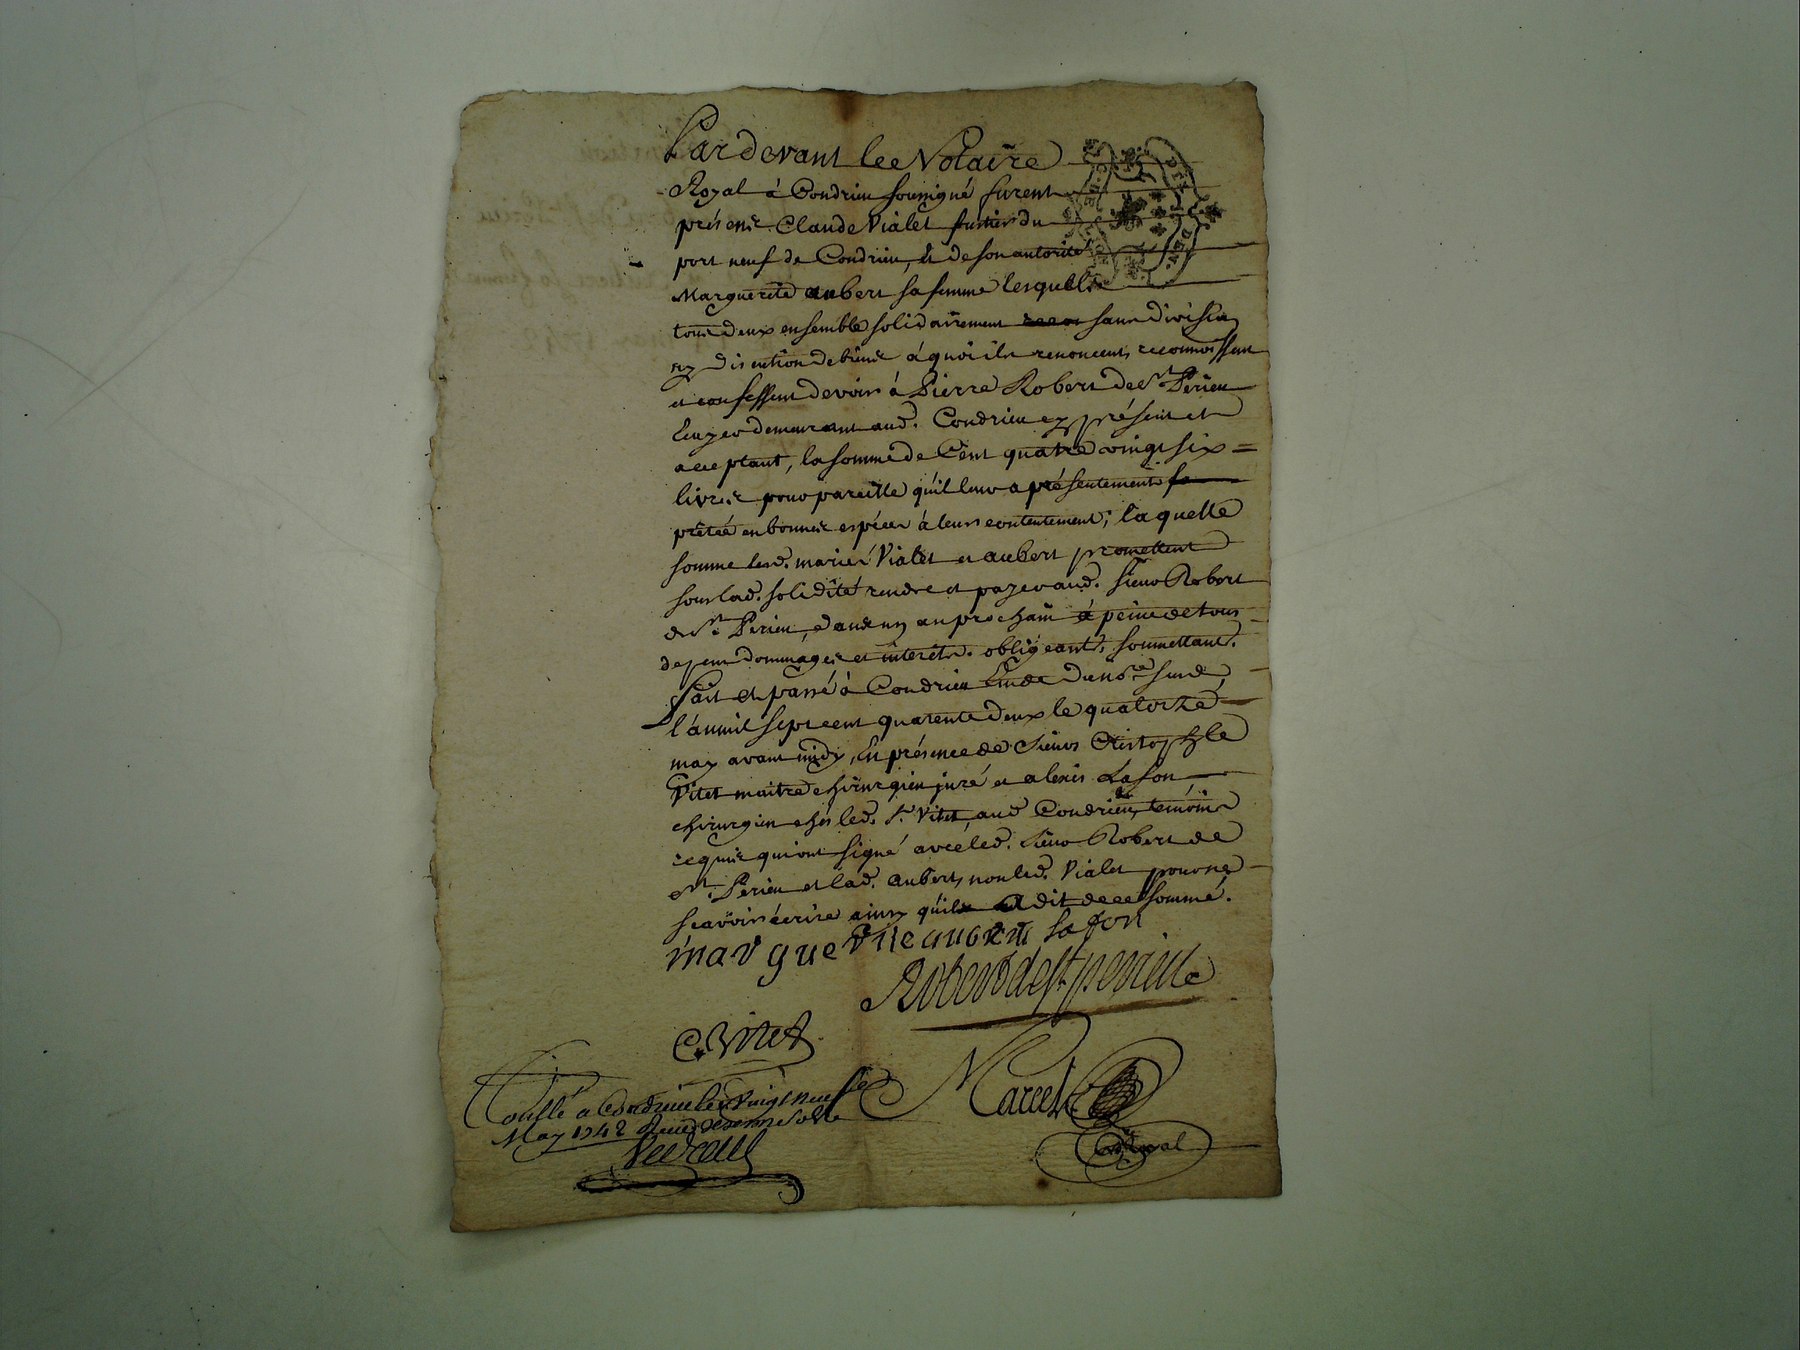 Pardevant le Notaire
Royal à Condrieu soussigné furent
présens Claude Vialet fustier du
port neuf de Condrieu, et de son autorité
Marguerite aubert sa femme lesquels
tous deux ensemble solidairement sans division
ny discution de biens à quoi ils renoncent, reconnoissent
et confessent devoir à Pierre Robert de St. Perieu
Ecuyer demeurant aud. Condrieu cy présent et
acceptant, la somme de Cent quatre vingt six =
livres pour pareille qu'il leur a présentement
prêtée en bonnes espèces à leurs contentement; laquelle
somme lesd. mariés Vialet et aubert promettent
sous lad. solidité rendre et payer aud. sieur Robert
de St. Perieu, dans un an prochain à peine de tous
depens dommages et interets. obligeant. soumettant.
fait et passé à Condrieu Etude du no.re sus.d
l'an mil sept cent quarente deux le quatorze
may avant midy, En présence de sieurs Cristophle
Vitet maitre chirurgien juré et alexis Lafon
chirurgien chés led. Sr. Vitet, aud Condrieu, temoins
requis qui ont signé avec led. sieur Robert de
St. Perieu et lad. aubert, non led. Vialet pour ne
scavoir écrire ainsy qu'il a dit de ce sommé.
margueritte aubert lafon
Robert de st perieu
C. Vitet
Marcel
No.re Royal
Conllé a Condrieu le Vingt neuf
May 1742 Reçu